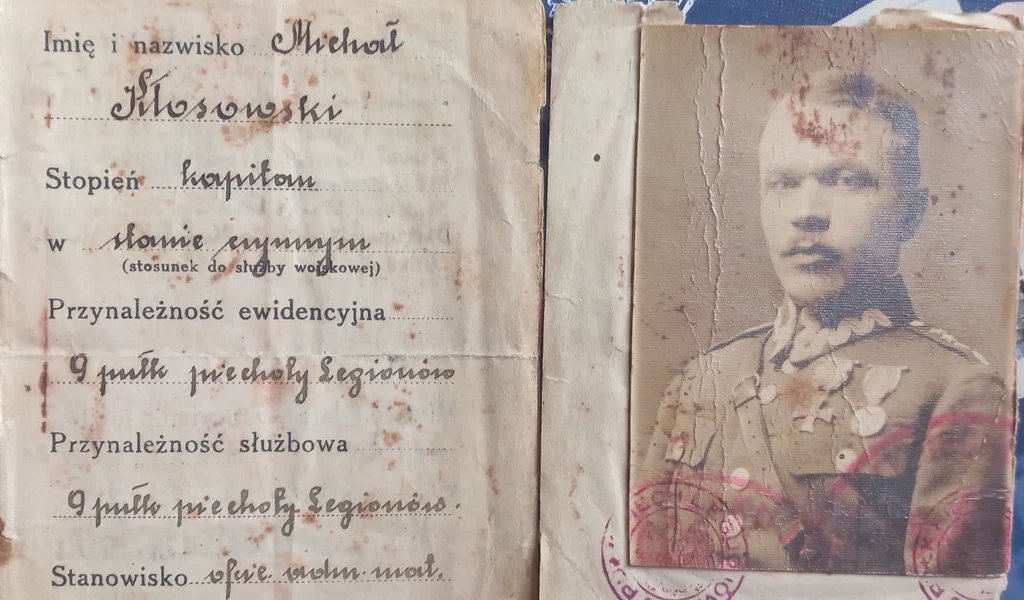 Imię i nazwisko Michał
Kłosowski
Stopień kapitan
w stanie czynnym
(stosunek do służby wojskowej)
Przynależność ewidencyjna
9 pułk piechoty Legionów
Przynależność służbowa
9 pułk piechoty Legionów.
Stanowisko ofic. adm. mat.